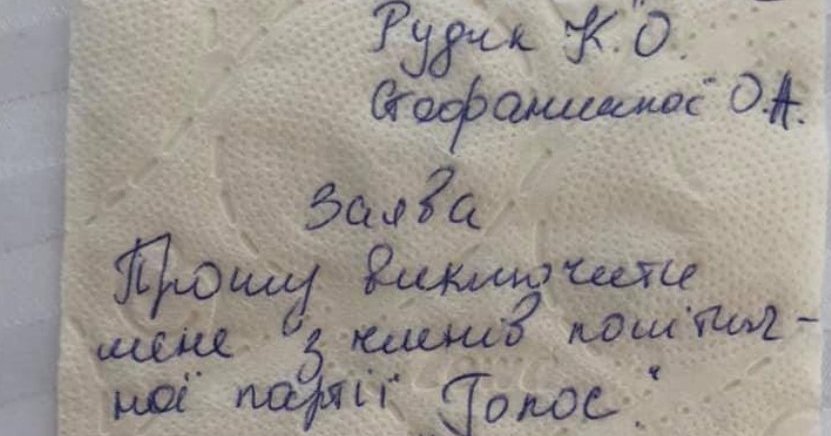 Рудик К.О.
Стефанишиної О.А.
Заява
Прошу виключити
мене з членів політич-
ної партії "Голос"